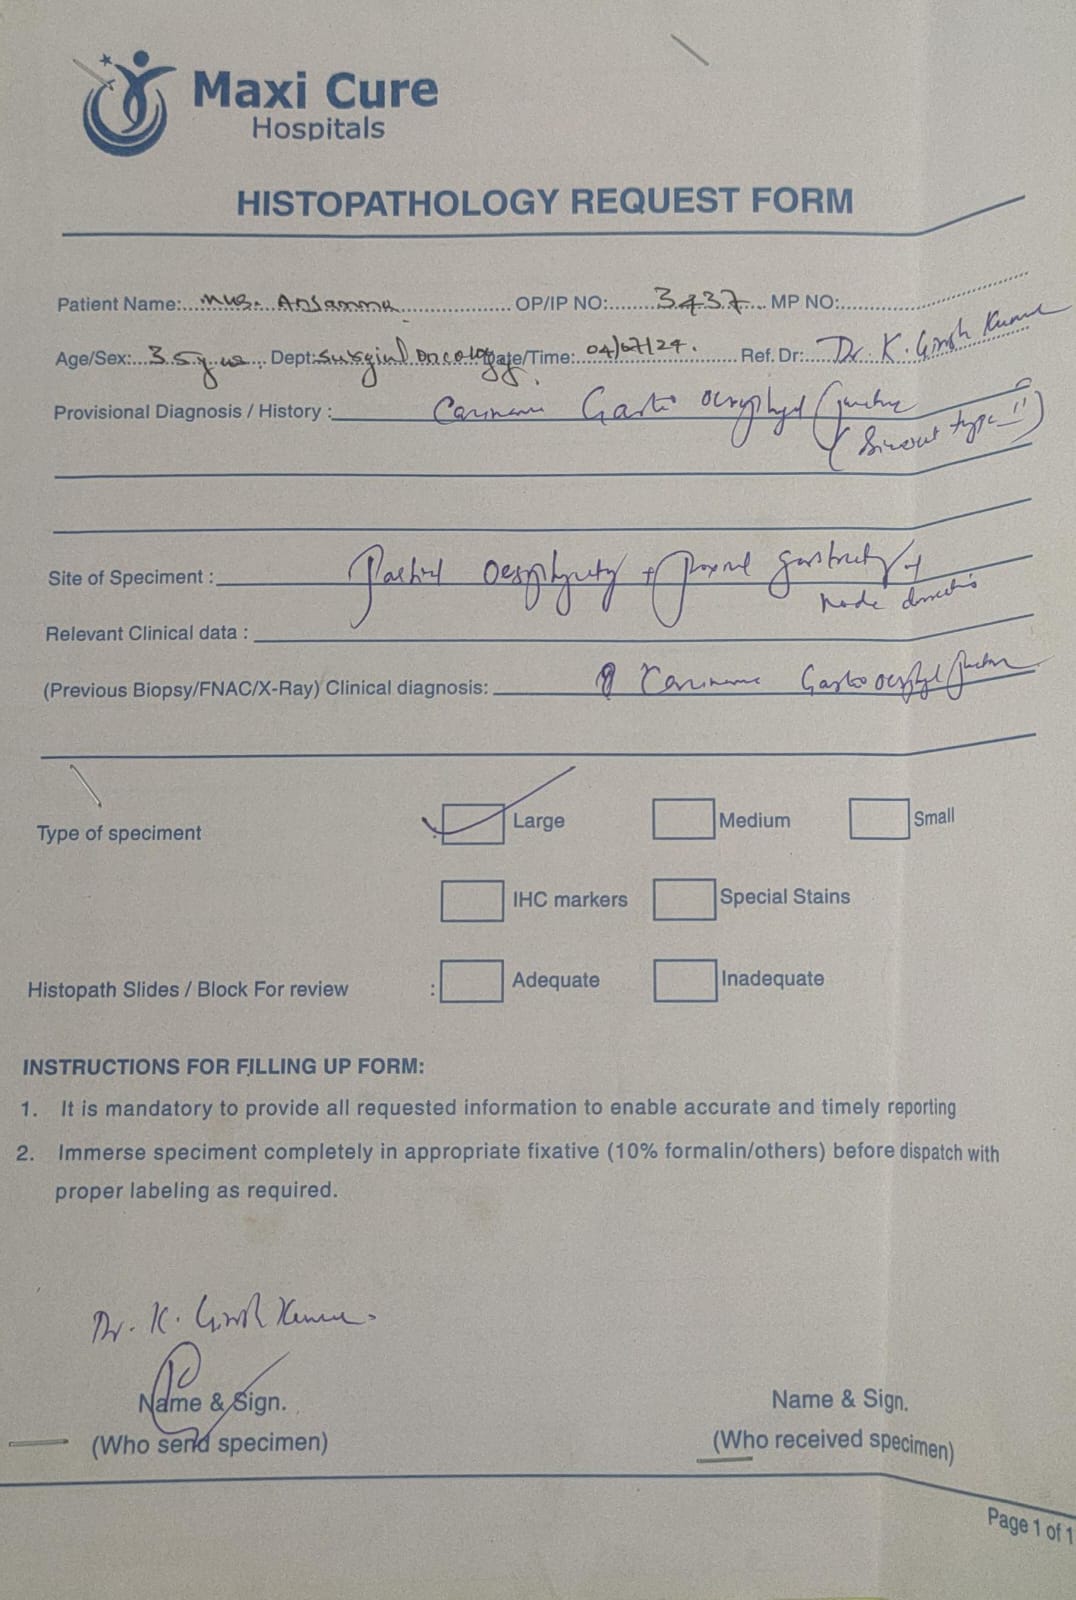 Maxi Cure
Hospitals
HISTOPATHOLOGY REQUEST FORM
Patient Name: Mrs. OP/IP NO: 3437 MP NO:
Age/Sex: 35 yrs Dept: surgical oncology Date/Time: 04/07/24. Ref. Dr: Dr. K.
Provisional Diagnosis / History : Carcinoma Gastro oesophageal junction
(Siewert type II)
Site of Speciment : Partial oesophagectomy + proximal gastrectomy +
node dissection
Relevant Clinical data :
(Previous Biopsy/FNAC/X-Ray) Clinical diagnosis: Carcinoma Gastro oesophageal junction
Type of speciment Large Medium Small
IHC markers Special Stains
Histopath Slides / Block For review : Adequate Inadequate
INSTRUCTIONS FOR FILLING UP FORM:
1. It is mandatory to provide all requested information to enable accurate and timely reporting
2. Immerse speciment completely in appropriate fixative (10% formalin/others) before dispatch with
proper labeling as required.
Dr. K.
Name & Sign. Name & Sign.
(Who send specimen) (Who received specimen)
Page 1 of 1